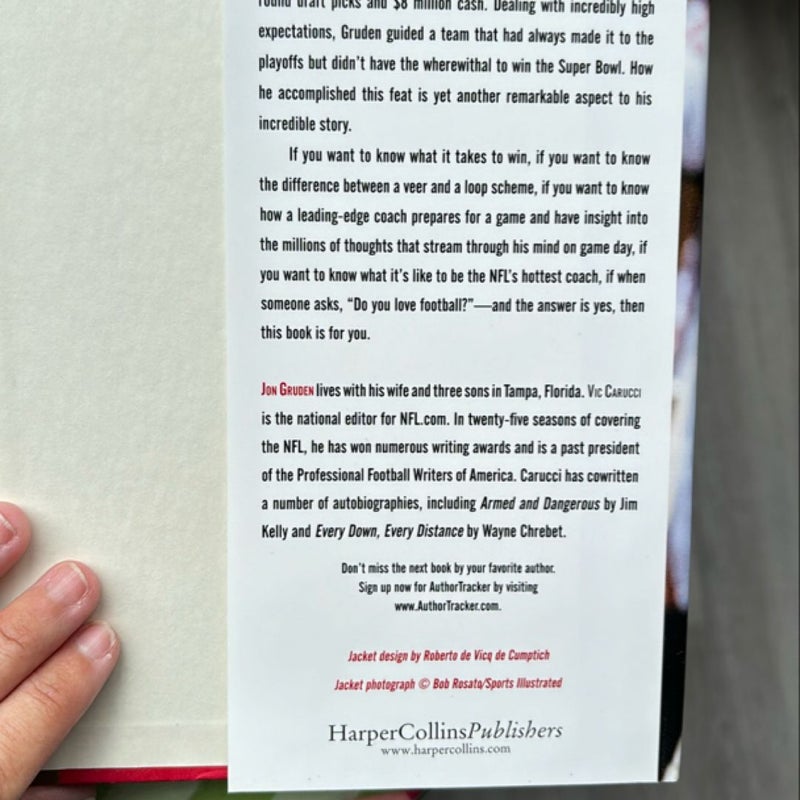 round draft picks and $8 million cash. Dealing with incredibly high
expectations, Gruden guided a team that had always made it to the
playoffs but didn't have the wherewithal to win the Super Bowl. How
he accomplished this feat is yet another remarkable aspect to his
incredible story.
If you want to know what it takes to win, if you want to know
the difference between a veer and a loop scheme, if you want to know
how a leading-edge coach prepares for a game and have insight into
the millions of thoughts that stream through his mind on game day, if
you want to know what it's like to be the NFL's hottest coach, if when
someone asks, “Do you love football?”—and the answer is yes, then
this book is for you.
JON GRUDEN lives with his wife and three sons in Tampa, Florida. VIC CARUCCI
is the national editor for NFL.com. In twenty-five seasons of covering
the NFL, he has won numerous writing awards and is a past president
of the Professional Football Writers of America. Carucci has cowritten
a number of autobiographies, including Armed and Dangerous by Jim
Kelly and Every Down, Every Distance by Wayne Chrebet.
Don't miss the next book by your favorite author.
Sign up now for AuthorTracker by visiting
www.AuthorTracker.com.
Jacket design by Roberto de Vicq de Cumptich
Jacket photograph © Bob Rosato/Sports Illustrated
HarperCollinsPublishers
www.harpercollins.com